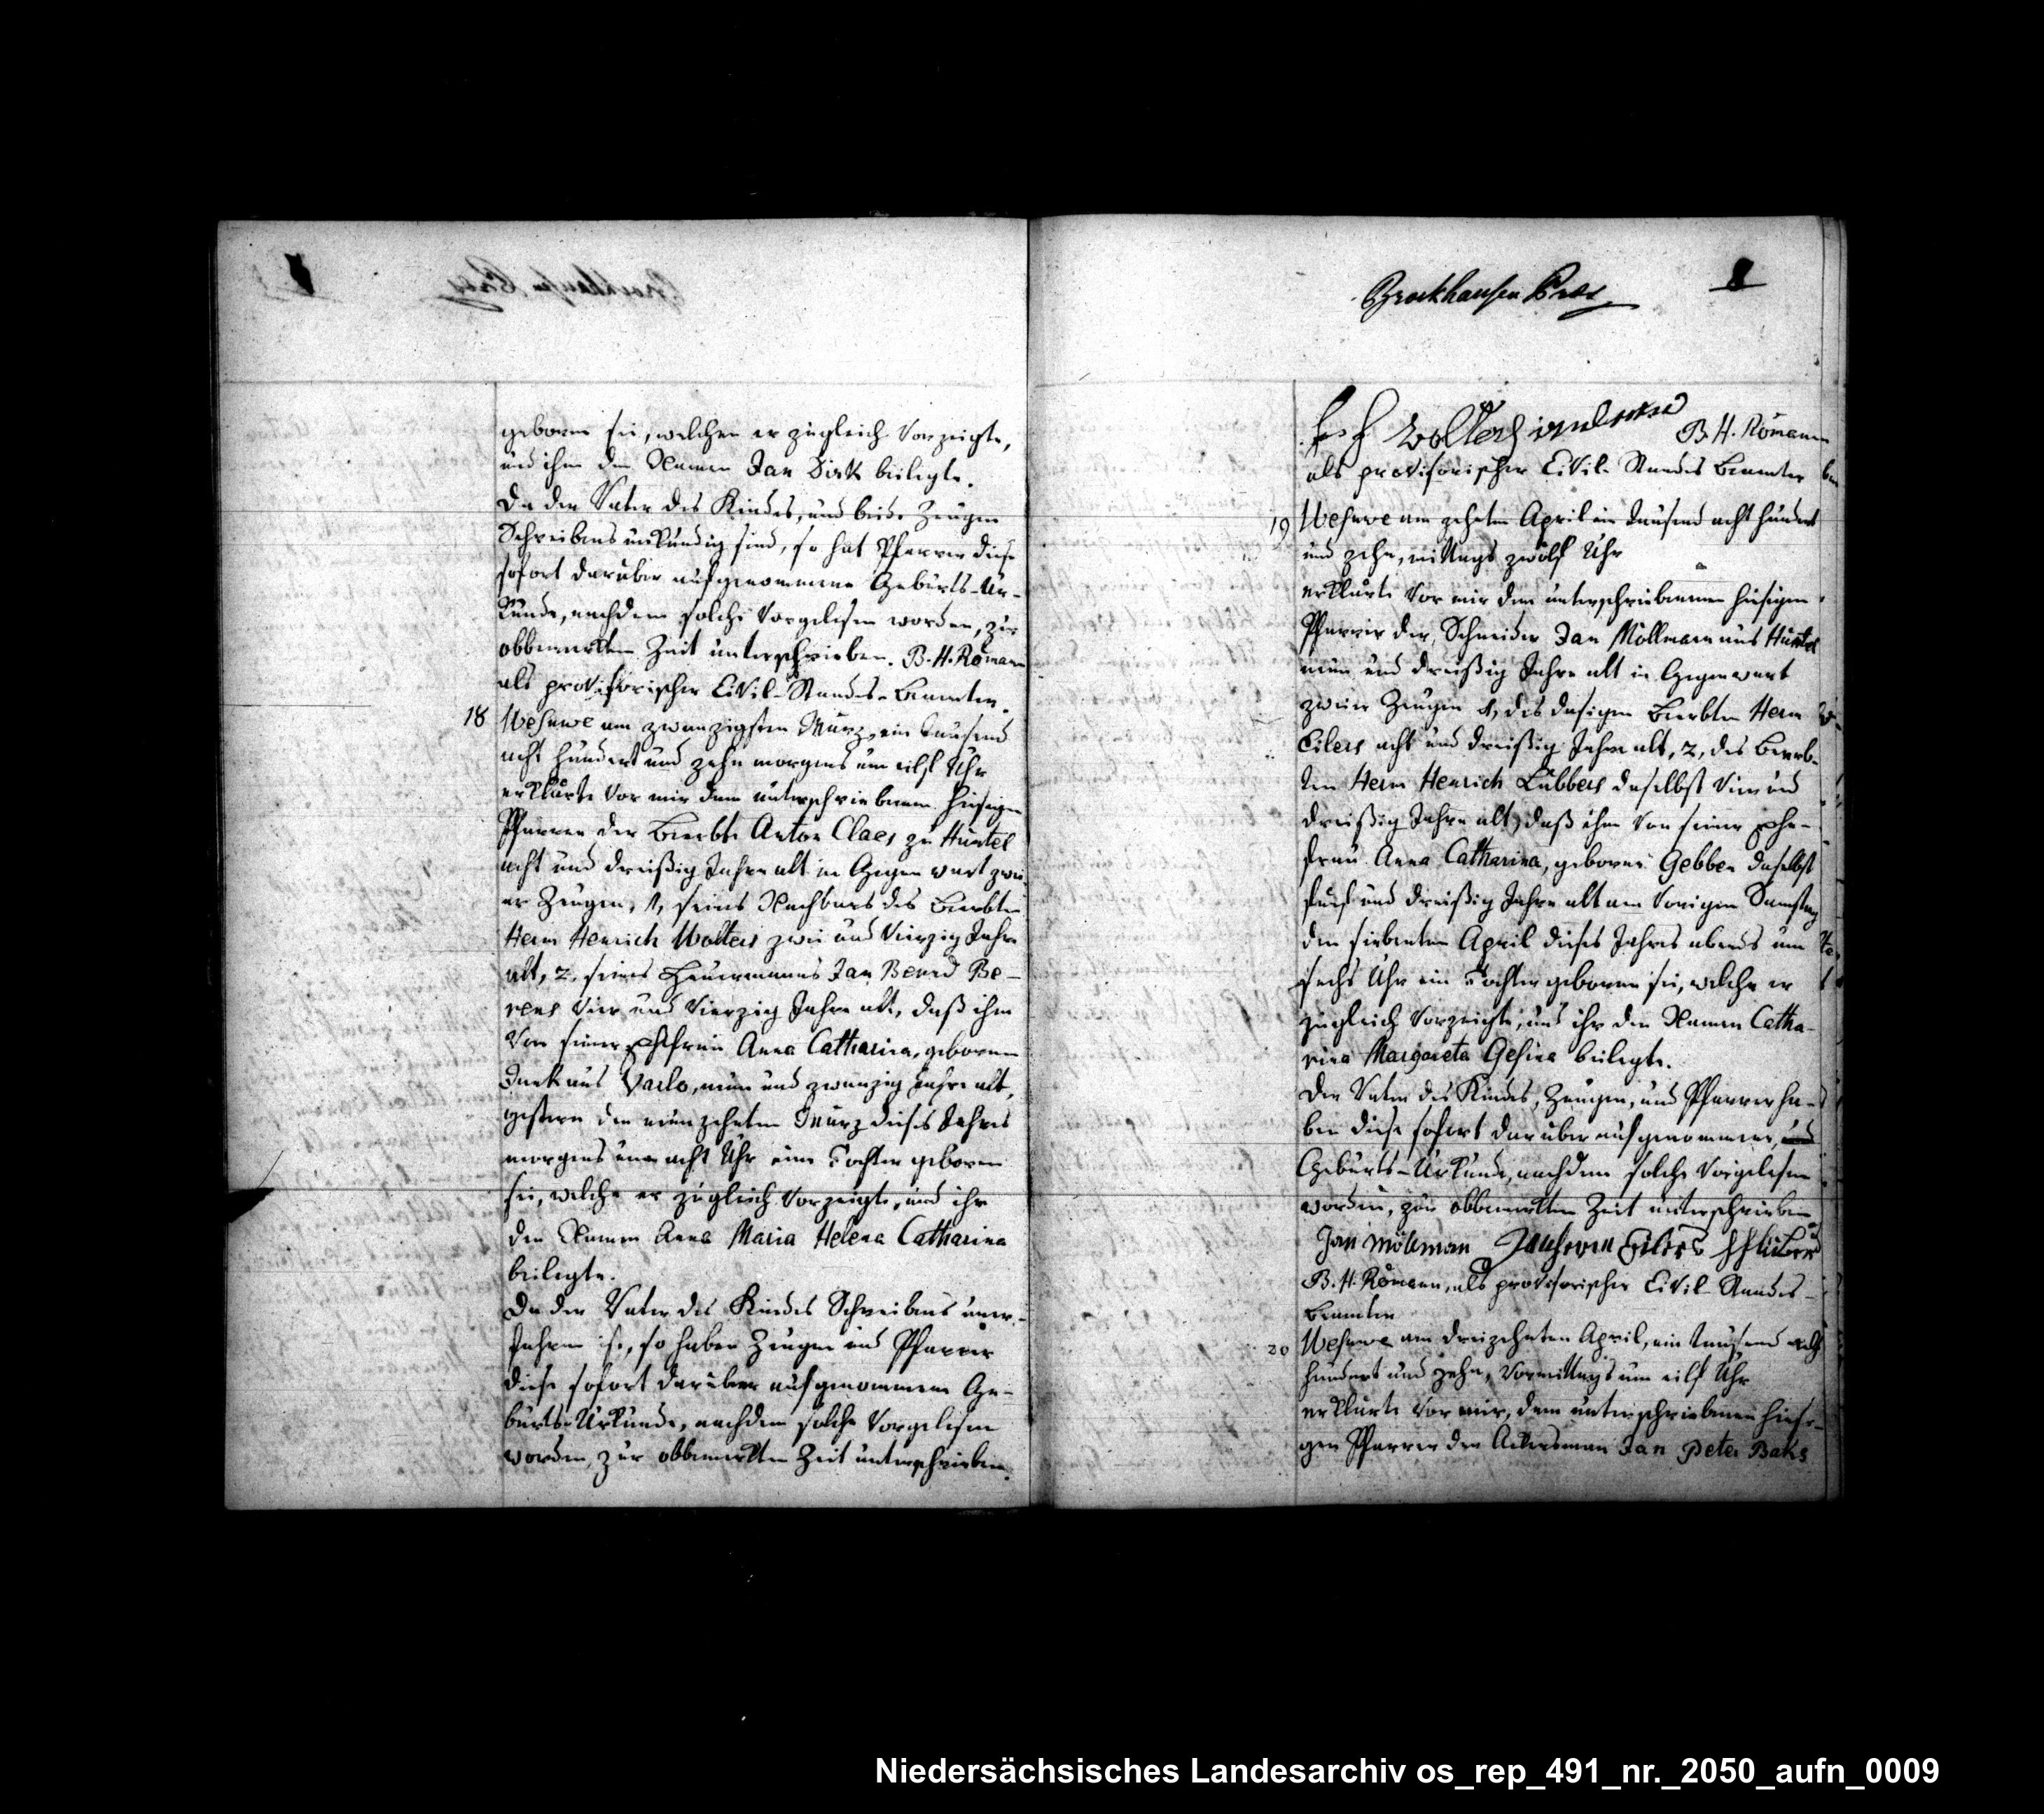 geboren sei, welchen er zugleich vorzeigte,
und ihm den Namen Jan Dirk beilegte.
Da der Vater des Kindes, und beide Zeugen
Schreibens unkundig sind, so hat Pfarrer diese
sofort darüber aufgenommene Geburts-Ur-
kunde, nachdem solche vorgelesen worden, zur
obbemerkten Zeit unterschrieben. B. H. Römann
als provisorischer Civil-Standes-Beamter.
18 Wesuwe am zwanzigsten März, ein tausend
acht hundert und zehn morgens um eilf Uhr
erklärte vor mir dem unterschriebenen hiesigen
Pfarrer der Beerbte Anton Claes zu Hüntel
acht und dreißig Jahre alt in Gegenwart zwei-
er Zeugen, 1, seines Nachbars des Beerbten
Herm Henrich Wolters zwei und vierzig Jahre
alt, 2, seines Heuermanns Jan Berend Be-
rens vier und vierzig Jahre alt, daß ihm
von seiner Ehefrau Anna Catharina, geboren
aus Varlo, neun und zwanzig Jahre alt,
gestern den neunzehnten März dieses Jahres
morgens um acht Uhr eine Tochter geboren
sei, welche er zugleich vorzeigte, und ihr
den Namen Anna Maria Helena Catharina
beilegte.
Da der Vater des Kindes Schreibens uner-
fahren ist, so haben Zeugen und Pfarrer
diese sofort darüber aufgenommene Ge-
burts-Urkunde, nachdem solche vorgelesen
worden, zur obbemerkten Zeit unterschrieben.
Brockhausen Pres
8
Wolters B. H. Römann
als provisorischer Civil-Standes Beamter
19 Wesuwe am zehnten April ein tausend acht hundert
und zehn, mittags zwölf Uhr
erklärte vor mir dem unterschriebenen hiesigen
Pfarrer der Schneider Jan Möllmann aus Hüntel
neun und dreißig Jahre alt in Gegenwart
zweier Zeugen 1, des dasigen Beerbten Herm
Eilers acht und dreißig Jahre alt, 2, des Beerb-
ten Herm Henrich Lübbers daselbst vier und
dreißig Jahre alt, daß ihm von seiner Ehe-
frau Anna Catharina, geboren Gebben daselbst
fünf und dreißig Jahre alt am vorigen Samstag
den siebenten April dieses Jahres abends um
sechs Uhr ein Tochter geboren sei, welche er
zugleich vorzeigte, und ihr den Namen Catha-
rina Margareta Gesina beilegte.
Der Vater des Kindes, Zeugen, und Pfarrer ha-
ben diese sofort darüber aufgenommene
Geburts-Urkunde, nachdem solche vorgelesen
worden, zur obbemerkten Zeit unterschrieben
Jan Möllman Janherm Eilers
B. H. Römann, als provisorischer Civil-Standes-
Beamter
20 Wesuwe am dreizehnten April, ein tausend acht
hundert und zehn, vormittags um eilf Uhr
erklärte vor mir, dem unterschriebenen hiesi-
gen Pfarrer der Ackersmann Jan Peter Baks
Niedersächsisches Landesarchiv os_rep_491_nr._2050_aufn_0009